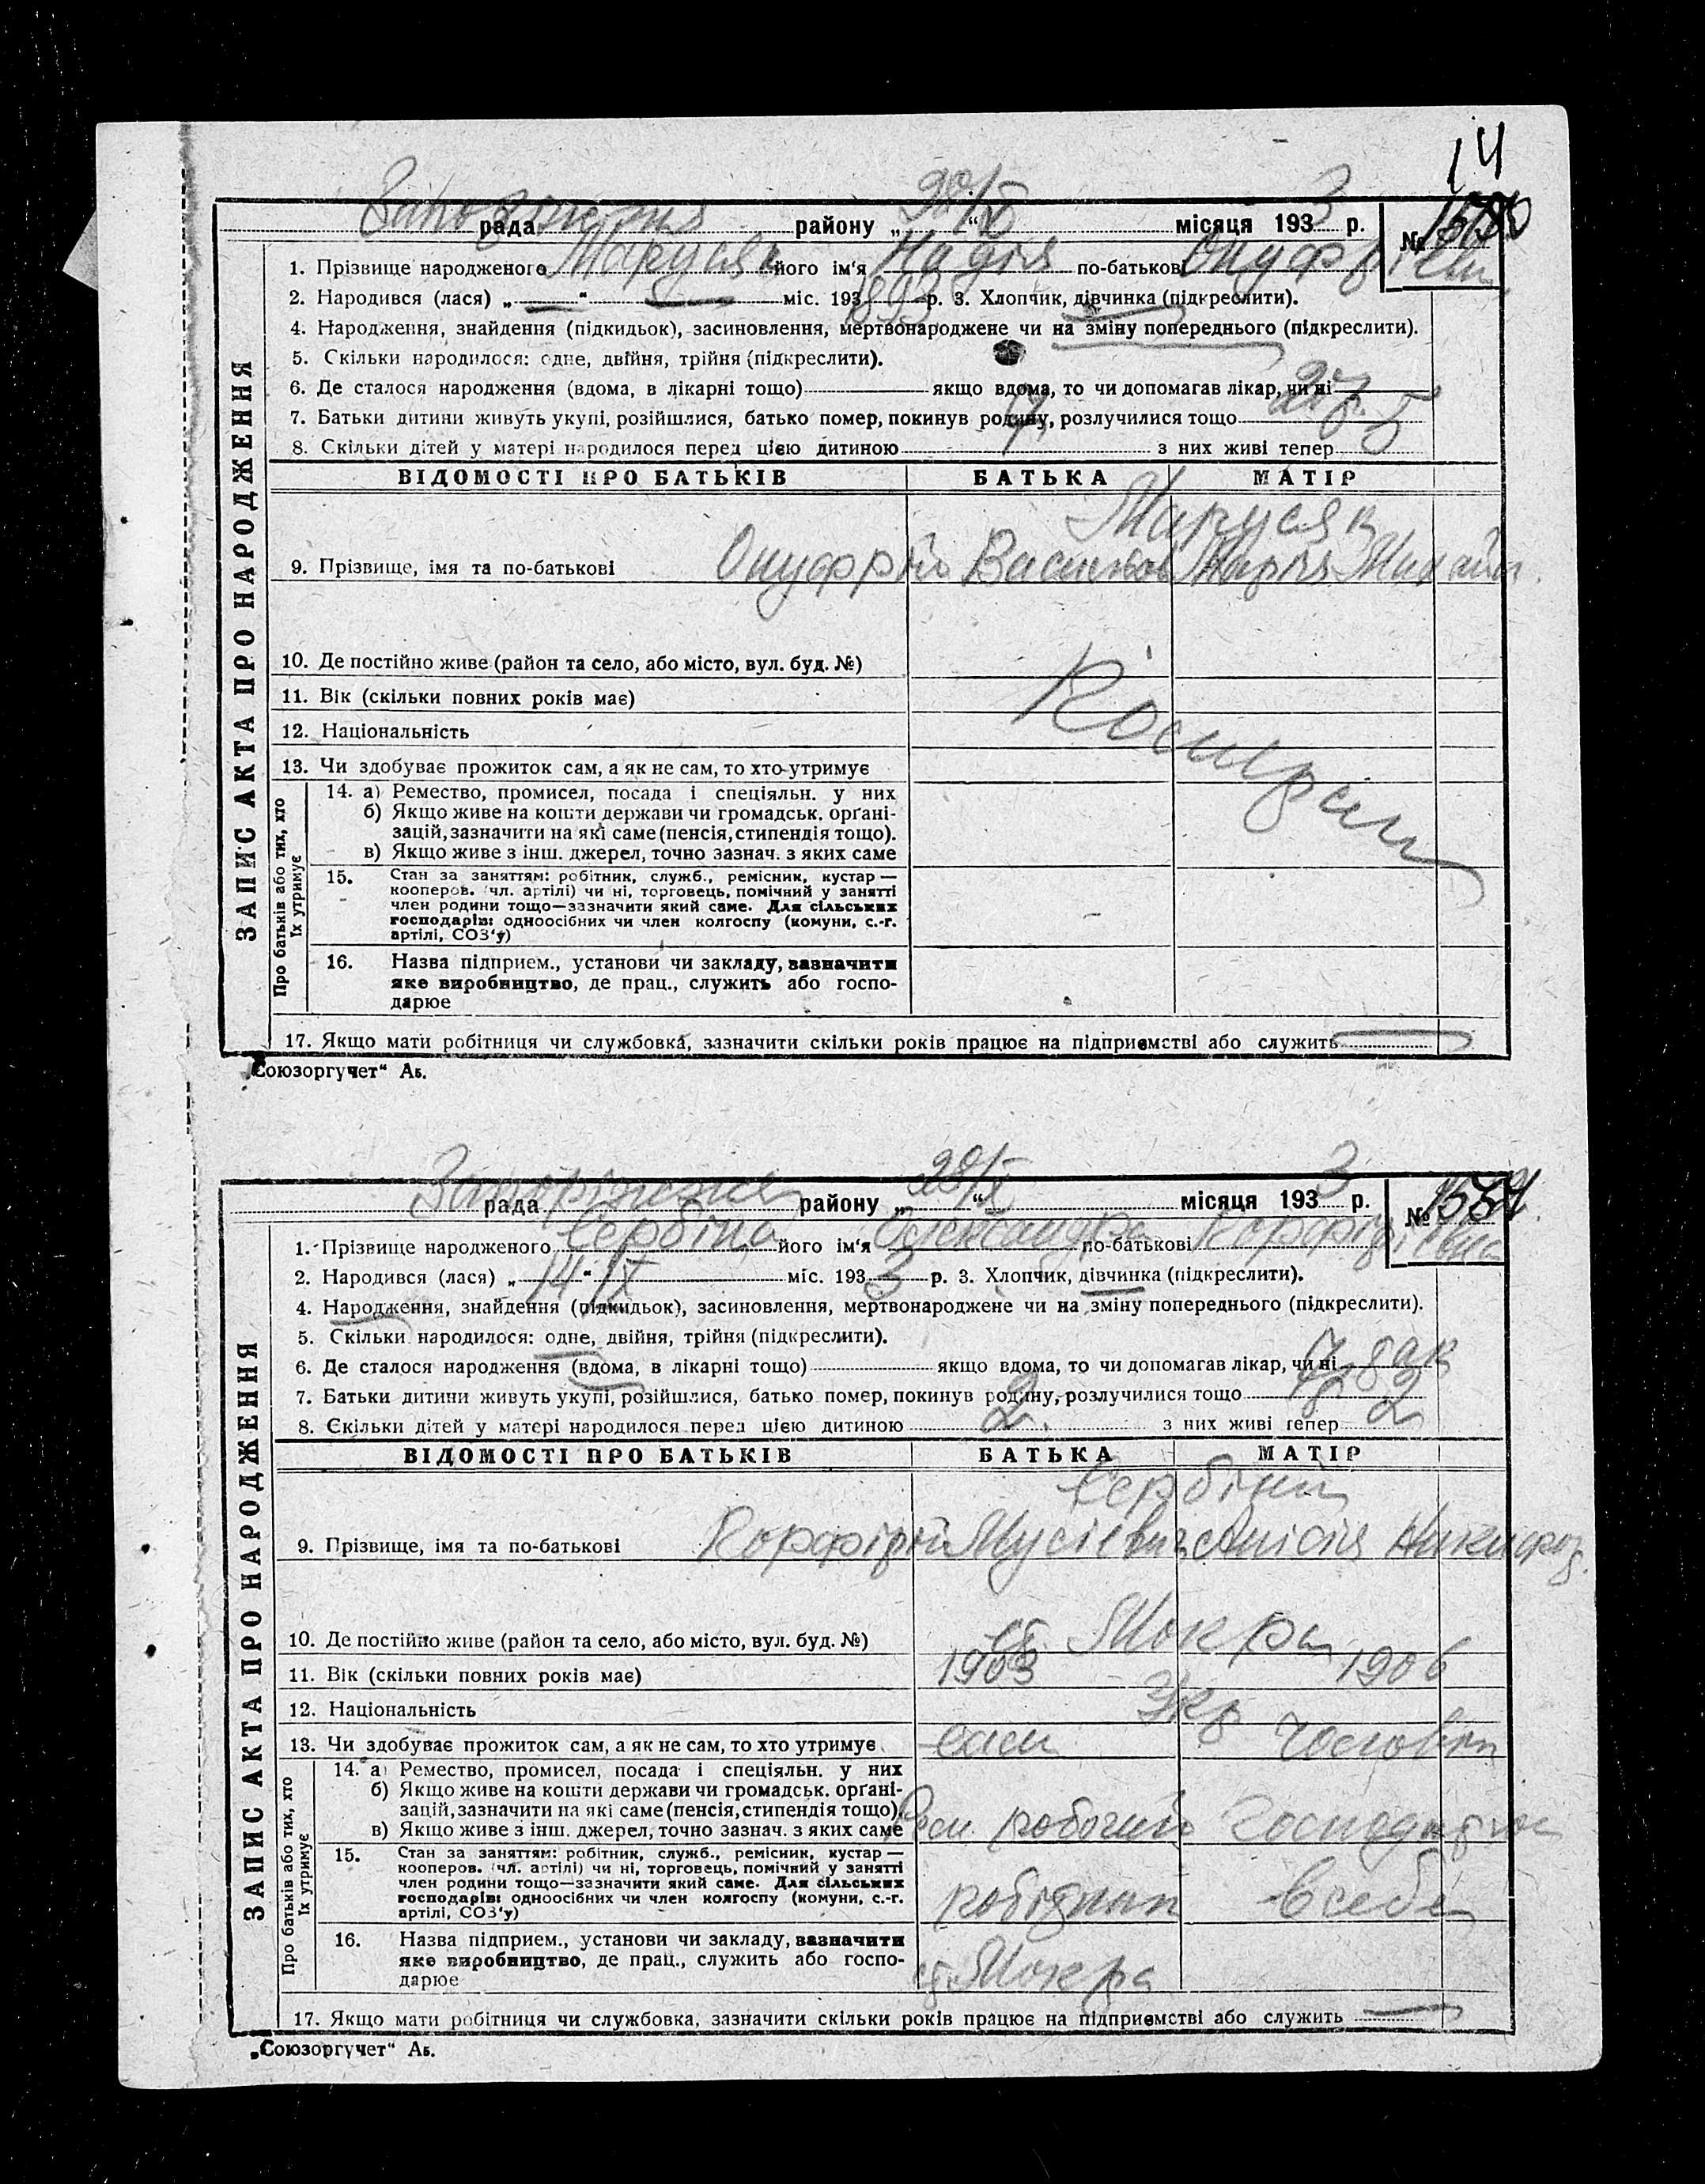 14
рада району „28/X“ місяця 1933 р. №
1. Прізвище народженого Марусяк його ім'я Надія по-батькові
2. Народився (лася) „ — “ — міс. 193 1893 р. 3. Хлопчик, дівчинка (підкреслити).
4. Народження, знайдення (підкидьок), засиновлення, мертвонароджене чи на зміну попереднього (підкреслити).
5. Скільки народилося: одне, двійня, трійня (підкреслити).
6. Де сталося народження (вдома, в лікарні тощо) якщо вдома, то чи допомагав лікар, чи ні
7. Батьки дитини живуть укупі, розійшлися, батько помер, покинув родину, розлучилися тощо
8. Скільки дітей у матері народилося перед цією дитиною з них живі тепер 5
ВІДОМОСТІ ПРО БАТЬКІВ БАТЬКА МАТІР
Марусяк
9. Прізвище, імя та по-батькові Онуфрій Васильов Марія Михайл.
10. Де постійно живе (район та село, або місто, вул. буд. №)
11. Вік (скільки повних років має)
12. Національність
13. Чи здобуває прожиток сам, а як не сам, то хто утримує
14. а) Ремество, промисел, посада і спеціяльн. у них
б) Якщо живе на кошти держави чи громадськ. орґані-
зацій, зазначити на які саме (пенсія, стипендія тощо).
в) Якщо живе з інш. джерел, точно зазнач. з яких саме
15. Стан за заняттям: робітник, служб., ремісник, кустар —
кооперов. (чл. артілі) чи ні, торговець, помічний у занятті
член родини тощо—зазначити який саме. Для сільських
господарів: одноосібних чи член колгоспу (комуни, с.-г.
артілі, СОЗ'у)
16. Назва підприєм., установи чи закладу, зазначити
яке виробництво, де прац., служить або госпо-
дарює
17. Якщо мати робітниця чи службовка, зазначити скільки років працює на підприємстві або служить —
ЗАПИС АКТА ПРО НАРОДЖЕННЯ
Про батьків або тих, хто
їх утримує
„Союзоргучет“ Аб.
рада району „28/X“ місяця 1933 р. №
1. Прізвище народженого Сербіна його ім'я Олександра по-батькові
2. Народився (лася) „14“ IX міс. 1933 р. 3. Хлопчик, дівчинка (підкреслити).
4. Народження, знайдення (підкидьок), засиновлення, мертвонароджене чи на зміну попереднього (підкреслити).
5. Скільки народилося: одне, двійня, трійня (підкреслити).
6. Де сталося народження (вдома, в лікарні тощо) якщо вдома, то чи допомагав лікар, чи ні
7. Батьки дитини живуть укупі, розійшлися, батько помер, покинув родину, розлучилися тощо
8. Скільки дітей у матері народилося перед цією дитиною 2. з них живі тепер 2
ВІДОМОСТІ ПРО БАТЬКІВ БАТЬКА МАТІР
Сербіни
9. Прізвище, імя та по-батькові Мусієвич Анісія Никифор.
10. Де постійно живе (район та село, або місто, вул. буд. №) ст Мокра
11. Вік (скільки повних років має) 1903 1906
12. Національність Укр
13. Чи здобуває прожиток сам, а як не сам, то хто утримує сам чоловік
14. а) Ремество, промисел, посада і спеціяльн. у них
б) Якщо живе на кошти держави чи громадськ. орґані-
зацій, зазначити на які саме (пенсія, стипендія тощо).
в) Якщо живе з інш. джерел, точно зазнач. з яких саме робочий
15. Стан за заняттям: робітник, служб., ремісник, кустар —
кооперов. (чл. артілі) чи ні, торговець, помічний у занятті
член родини тощо—зазначити який саме. Для сільських
господарів: одноосібних чи член колгоспу (комуни, с.-г.
артілі, СОЗ'у) робітник в себе
16. Назва підприєм., установи чи закладу, зазначити
яке виробництво, де прац., служить або госпо-
дарює ст Мокра
17. Якщо мати робітниця чи службовка, зазначити скільки років працює на підприємстві або служить —
ЗАПИС АКТА ПРО НАРОДЖЕННЯ
Про батьків або тих, хто
їх утримує
„Союзоргучет“ Аб.